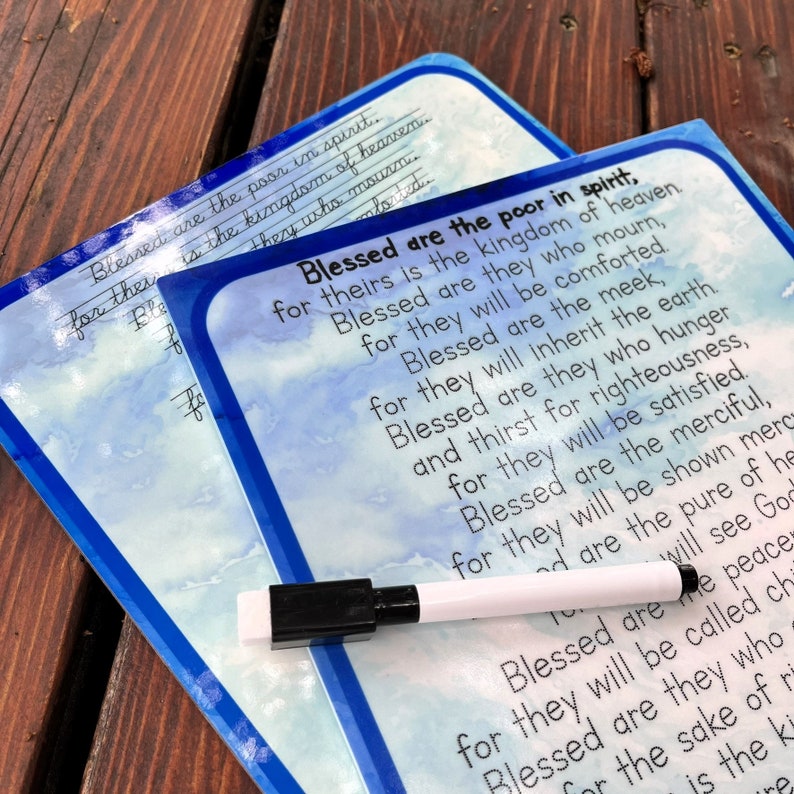 Blessed are the poor in spirit.
for theirs is the kingdom of heaven.
they who mourn.
Blessed are the poor in spirit,
for theirs is the kingdom of heaven.
Blessed are they who mourn,
for they will be comforted.
Blessed are the meek,
for they will inherit the earth.
Blessed are they who hunger
and thirst for righteousness,
for they will be satisfied.
Blessed are the merciful,
for they will be shown
Blessed are the pure of
will see God
are the peace
Blessed
for they will be called
Blessed are they who
for the sake of
is the